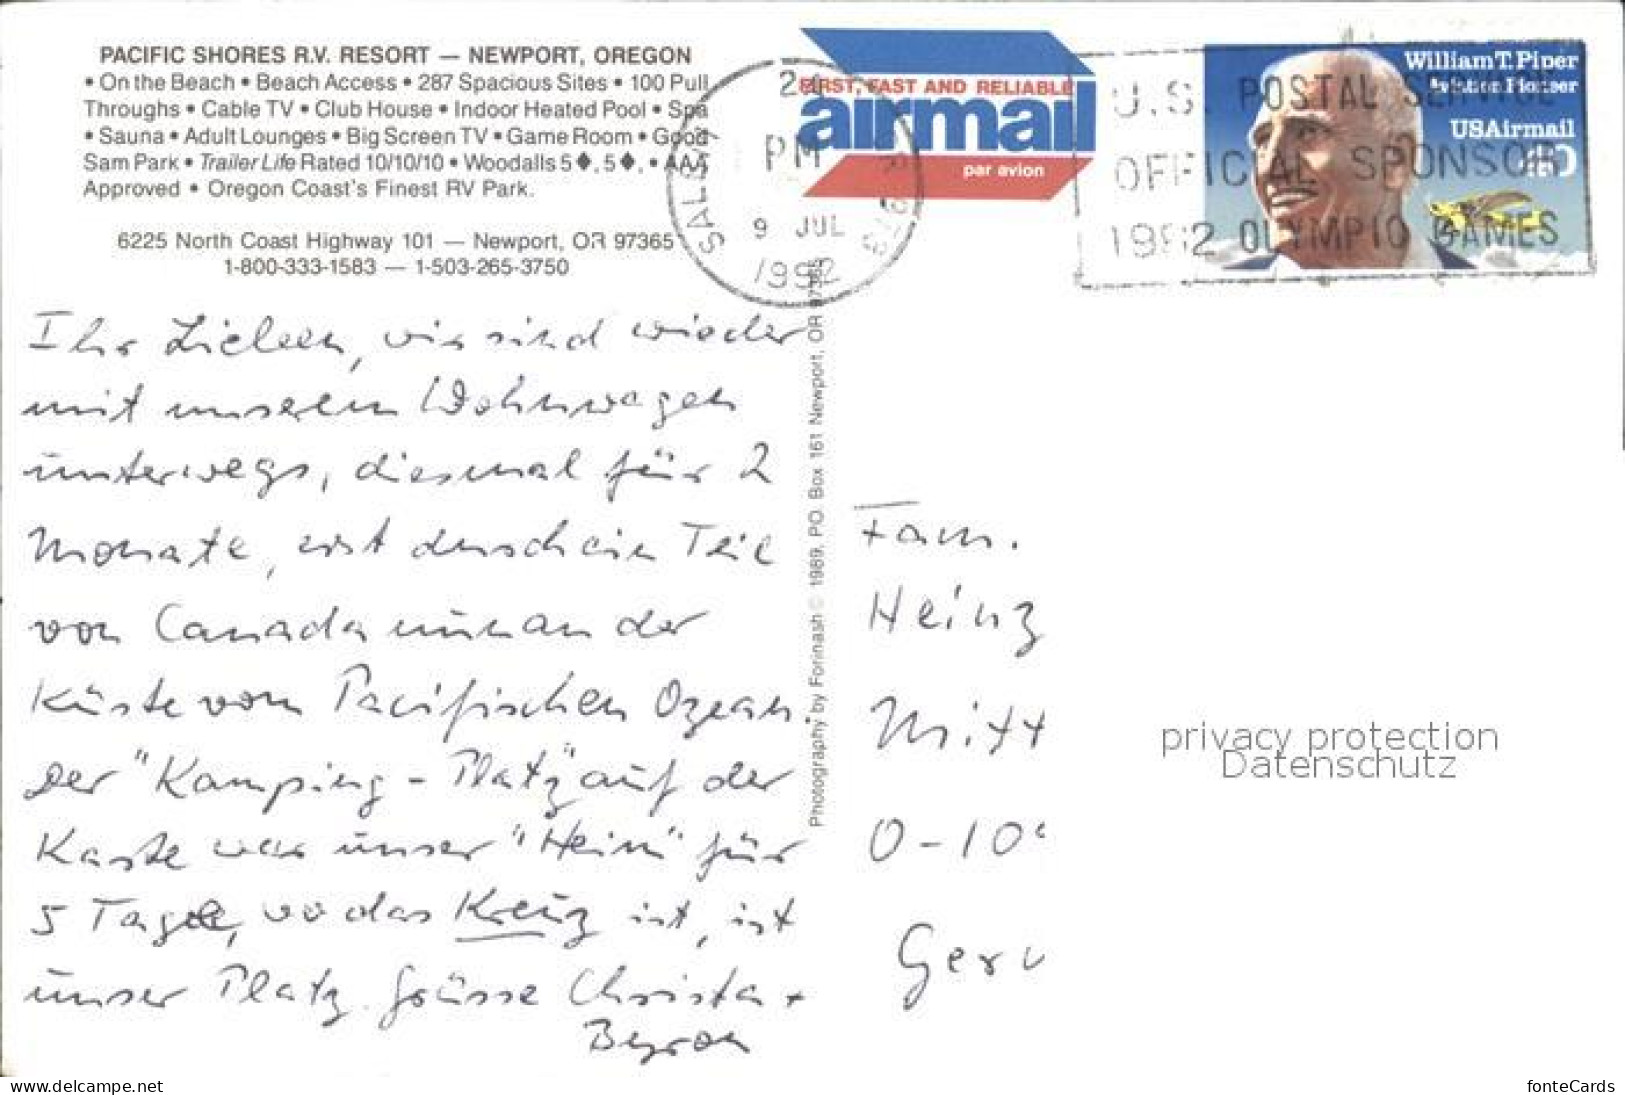 PACIFIC SHORES R.V. RESORT — NEWPORT, OREGON
• On the Beach • Beach Access • 287 Spacious Sites • 100 Pull
Throughs • Cable TV • Club House • Indoor Heated Pool • Spa
• Sauna • Adult Lounges • Big Screen TV • Game Room • Good
Sam Park • Trailer Life Rated 10/10/10 • Woodalls 5♦, 5♦, • AAA
Approved • Oregon Coast's Finest RV Park.
6225 North Coast Highway 101 — Newport, OR 97365
1-800-333-1583 — 1-503-265-3750
PM
9 JUL
1992
FIRST, FAST AND RELIABLE
airmail
par avion
U.S. POSTAL SERVICE
OFFICIAL SPONSOR
1992 OLYMPIC GAMES
William T. Piper
Aviation Pioneer
USAirmail
Ihr Lieben, wir sind wieder
mit unserem Wohnwagen
unterwegs, diesmal für 2
Monate, erst durch ein Teil
von Canada nun an der
Küste vom Pacifischen Ozean.
Der "Kamping - Platz" auf der
Karte war unser "Heim" für
5 Tage, wo das Kreuz ist, ist
unser Platz. Grüsse Christa +
Byron
Photography by Forinash © 1989, P.O. Box 161 Newport, OR 97365
Fam.
Heinz
Mitt
O-10
Ger
privacy protection
Datenschutz
www.delcampe.net
fonteCards